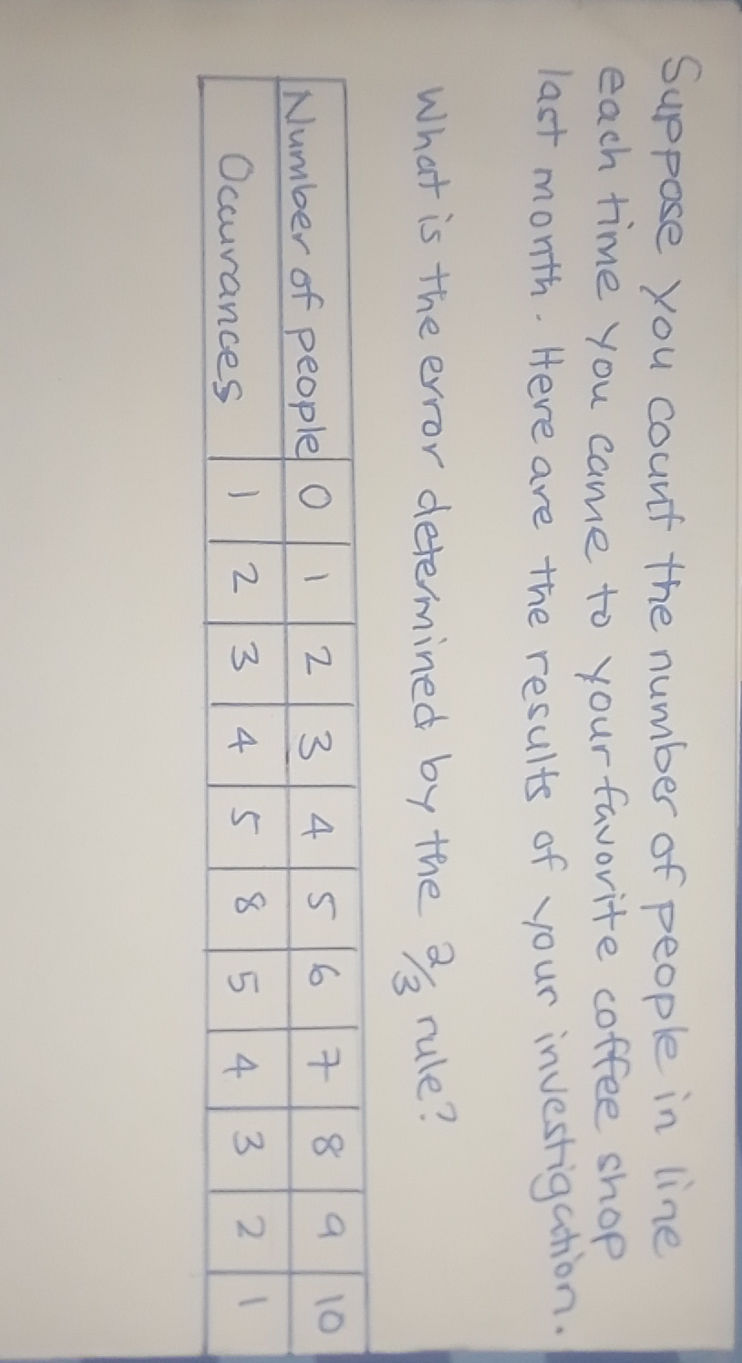 Suppose you count the number of people in line
each time you came to your favorite coffee shop
last month. Here are the results of your investigation.
What is the error determined by the 2/3 rule?
Number of people 0 1 2 3 4 5 6 7 8 9 10
Occurances 1 2 3 4 5 8 5 4 3 2 1